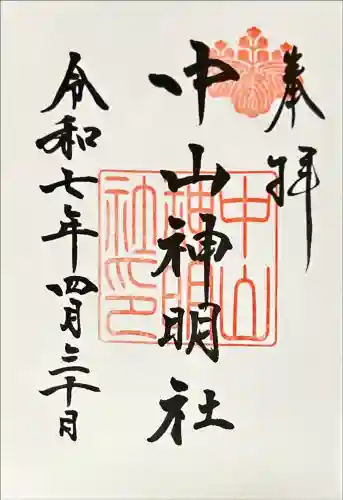 奉拝
中山神明社
令和七年四月三十日
中山
神明
社印